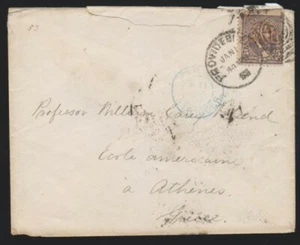 PROVIDEN
JAN
83
Professor William Carey Poland
Ecole américaine
à Athènes.
Grèce.